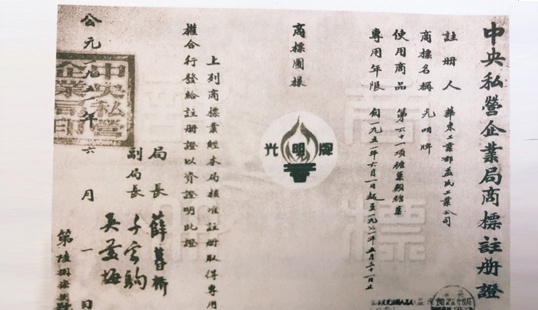 中央私營企業局商標註冊證
註冊人 華東工業部益民工業公司
商標名稱 光明牌
使用商品 第六十一項
專用年限 自一九五一年六月一日起至一九
商標圖樣
光明牌
上列商標業經本局核准註冊取得專用
權合行發給註冊證以資證明此證
局長 薛暮橋
副局長 千家駒
吳
公元一九 年六月一日
中央私營企業局印
商標